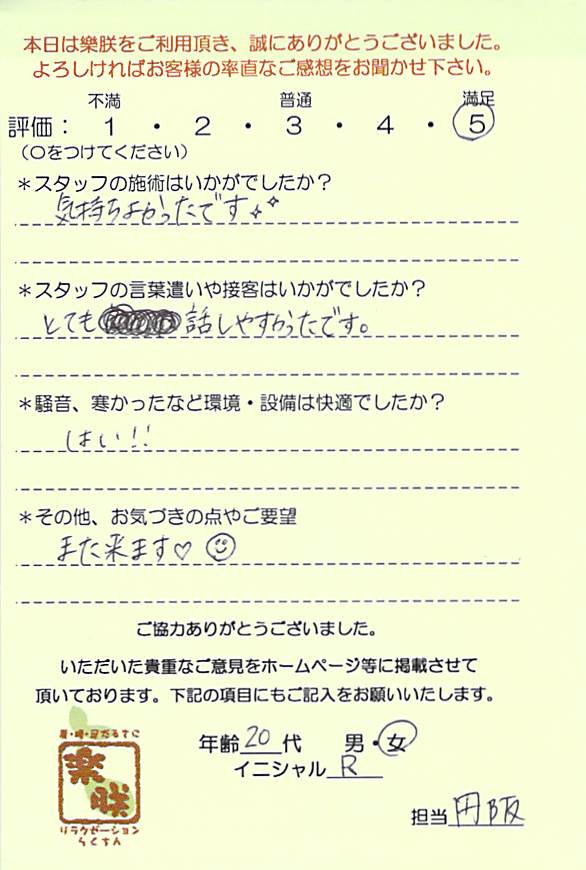 本日は樂朕をご利用頂き、誠にありがとうございました。
よろしければお客様の率直なご感想をお聞かせ下さい。
不満 普通 満足
評価： 1 ・ 2 ・ 3 ・ 4 ・ 5
（○をつけてください）
＊スタッフの施術はいかがでしたか？
気持ちよかったです
＊スタッフの言葉遣いや接客はいかがでしたか？
とても 話しやすかったです。
＊騒音、寒かったなど環境・設備は快適でしたか？
はい!!
＊その他、お気づきの点やご要望
また来ます♡ ☺
ご協力ありがとうございました。
いただいた貴重なご意見をホームページ等に掲載させて
頂いております。下記の項目にもご記入をお願いいたします。
年齢 20 代 男・女
イニシャル R
担当 円阪
楽朕
リラクゼーション
らくちん